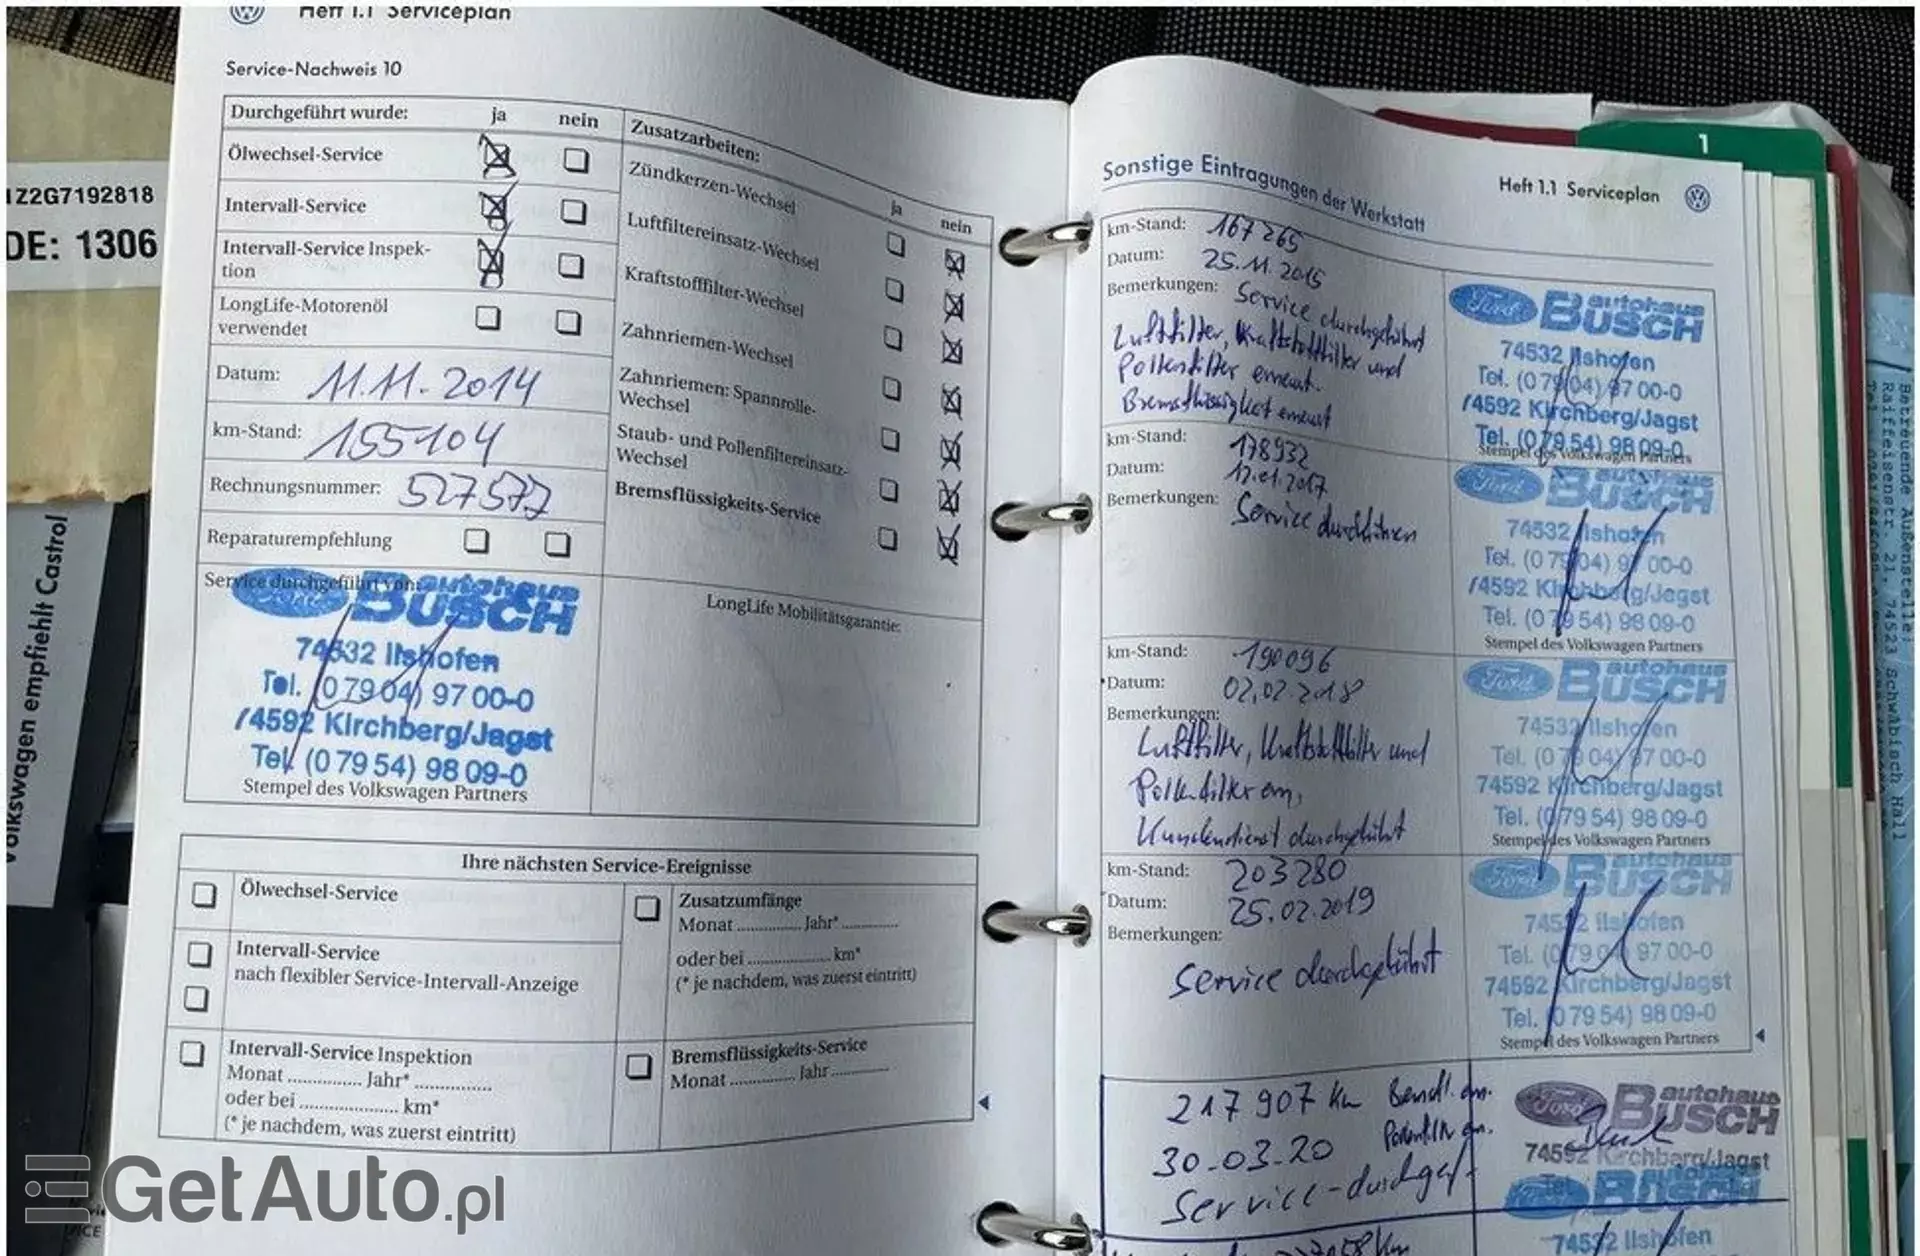 Heft 1.1 Serviceplan
Service-Nachweis 10
Durchgeführt wurde: ja nein
Ölwechsel-Service
Intervall-Service
Intervall-Service Inspek-
tion
LongLife-Motorenöl
verwendet
Datum: 11.11.2014
km-Stand: 155104
Rechnungsnummer: 527577
Reparaturempfehlung
Service durchgeführt von:
Ford autohaus
BUSCH
74532 Ilshofen
Tel. (0 79 04) 97 00-0
74592 Kirchberg/Jagst
Tel. (0 79 54) 98 09-0
Stempel des Volkswagen Partners
Zusatzarbeiten:
ja nein
Zündkerzen-Wechsel
Luftfiltereinsatz-Wechsel
Kraftstofffilter-Wechsel
Zahnriemen-Wechsel
Zahnriemen: Spannrolle-
Wechsel
Staub- und Pollenfiltereinsatz-
Wechsel
Bremsflüssigkeits-Service
LongLife Mobilitätsgarantie:
Ihre nächsten Service-Ereignisse
Ölwechsel-Service
Intervall-Service
nach flexibler Service-Intervall-Anzeige
Intervall-Service Inspektion
Monat .............. Jahr* ..............
oder bei .................... km*
(* je nachdem, was zuerst eintritt)
Zusatzumfänge
Monat .............. Jahr* ..............
oder bei .................. km*
(* je nachdem, was zuerst eintritt)
Bremsflüssigkeits-Service
Monat .............. Jahr ..............
Sonstige Eintragungen der Werkstatt
Heft 1.1 Serviceplan
km-Stand: 167265
Datum: 25.11.2015
Bemerkungen: Service durchgeführt
Luftfilter, Kraftstofffilter und
Pollenfilter erneut.
Bremsflüssigkeit erneut
Ford autohaus
BUSCH
74532 Ilshofen
Tel. (0 79 04) 97 00-0
74592 Kirchberg/Jagst
Tel. (0 79 54) 98 09-0
Stempel des Volkswagen Partners
km-Stand: 178932
Datum: 17.01.2017
Bemerkungen: Service durchführen
Ford BUSCH
74532 Ilshofen
Tel. (0 79 04) 97 00-0
74592 Kirchberg/Jagst
Tel. (0 79 54) 98 09-0
Stempel des Volkswagen Partners
km-Stand: 190096
Datum: 02.02.2018
Bemerkungen:
Luftfilter, Kraftstofffilter und
Pollenfilter ern,
Kundendienst durchgeführt
Ford autohaus
BUSCH
74532 Ilshofen
Tel. (0 79 04) 97 00-0
74592 Kirchberg/Jagst
Tel. (0 79 54) 98 09-0
Stempel des Volkswagen Partners
km-Stand: 203280
Datum: 25.02.2019
Bemerkungen:
Service durchgeführt
Ford autohaus
BUSCH
74532 Ilshofen
Tel. (0 79 04) 97 00-0
74592 Kirchberg/Jagst
Tel. (0 79 54) 98 09-0
Stempel des Volkswagen Partners
217 907 Km
30-03-20
Service-durchgef.
Ford autohaus
BUSCH
74592 Kirchberg/Jagst
BUSCH
74532 Ilshofen
1Z2G7192818
DE: 1306
Volkswagen empfiehlt Castrol
1
Betreuende Außenstelle:
Raiffeisenstr. 21, 74523 Schwäbisch Hall
GetAuto.pl